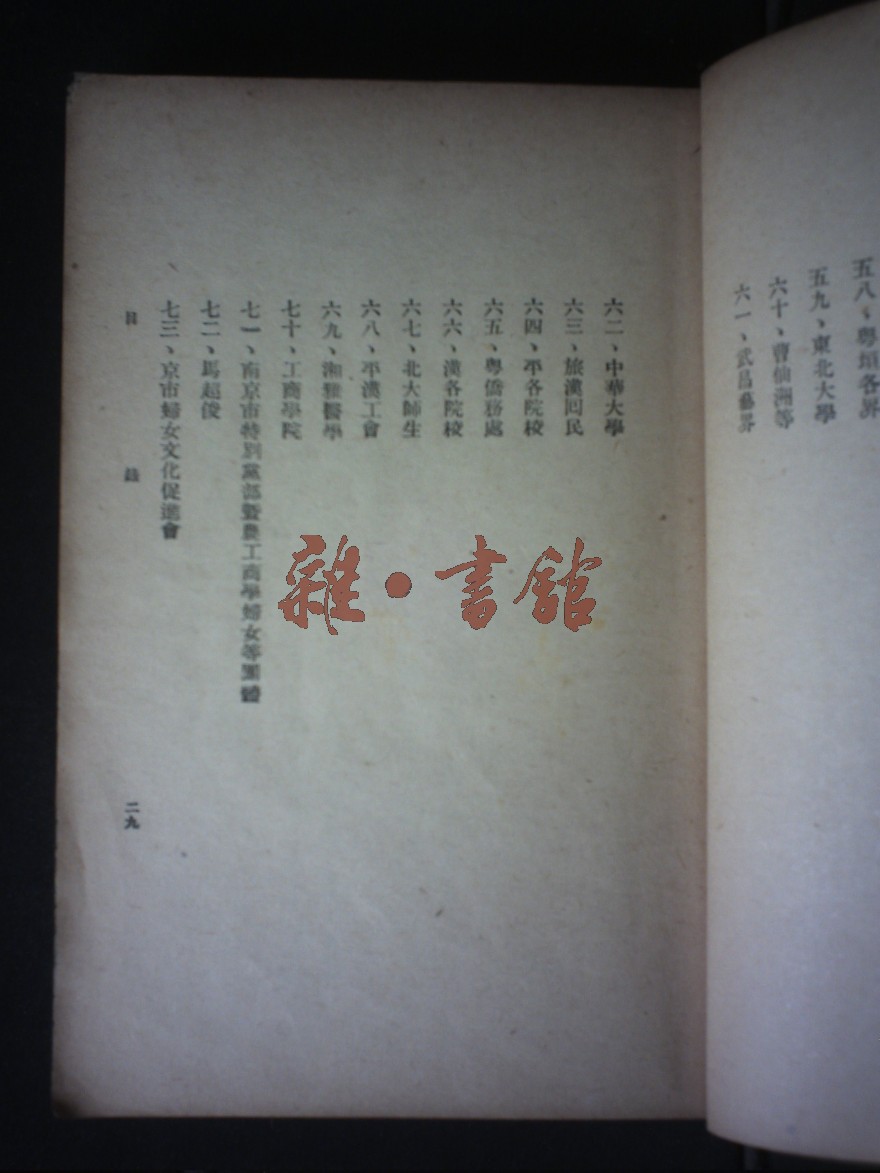 五八、粤垣各界
五九、東北大學
六十、曹仙洲等
六一、武昌藝界
六二、中華大學
六三、旅漢回民
六四、平各院校
六五、粤僑務處
六六、漢各院校
六七、北大師生
六八、平漢工會
六九、湘雅醫學
七十、工商學院
七一、南京市特別黨部暨農工商學婦女等團體
七二、馬超俊
七三、京市婦女文化促進會
目錄
二九
雜·書館